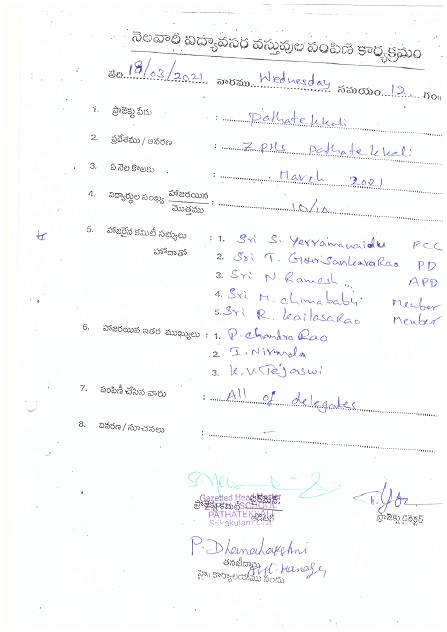 నెలవారి విద్యావసర వస్తువుల పంపిణి కార్యక్రమం
తేది. 18/03/2021 వారము Wednesday సమయం. 12 గం॥
1. ప్రాజెక్టు పేరు : Pathatekkali
2. ప్రదేశము / ఆవరణ : ZPHS Pathatekkali
3. ఏ నెల కొఱకు : March 2021
4. విద్యార్థుల సంఖ్య హాజరయిన / మొత్తము : 10/10
5. హాజరైన కమిటీ సభ్యులు హోదాతో : 1. Sri S. Yerrainaidu PCC
2. Sri T. Gowrisankara Rao PD
3. Sri N Ramesh APD
4. Sri M. chinababu Member
5. Sri R. Kailasa Rao Member
6. హాజరయిన ఇతర ముఖ్యులు : 1. P. Chandra Rao
2. I. Nirmala
3. K.V. Tejaswi
7. పంపిణీ చేసిన వారు : All of delegates
8. వివరణ / సూచనలు : –
Gazetted Head Master
SCHOOL
PATHATEKKALI
Srikakulam Dist
ప్రాజెక్టు డైరెక్టర్
P. Dhanalakshmi
తనఖీదారు
Manager
హై॥ కార్యాలయము నందు